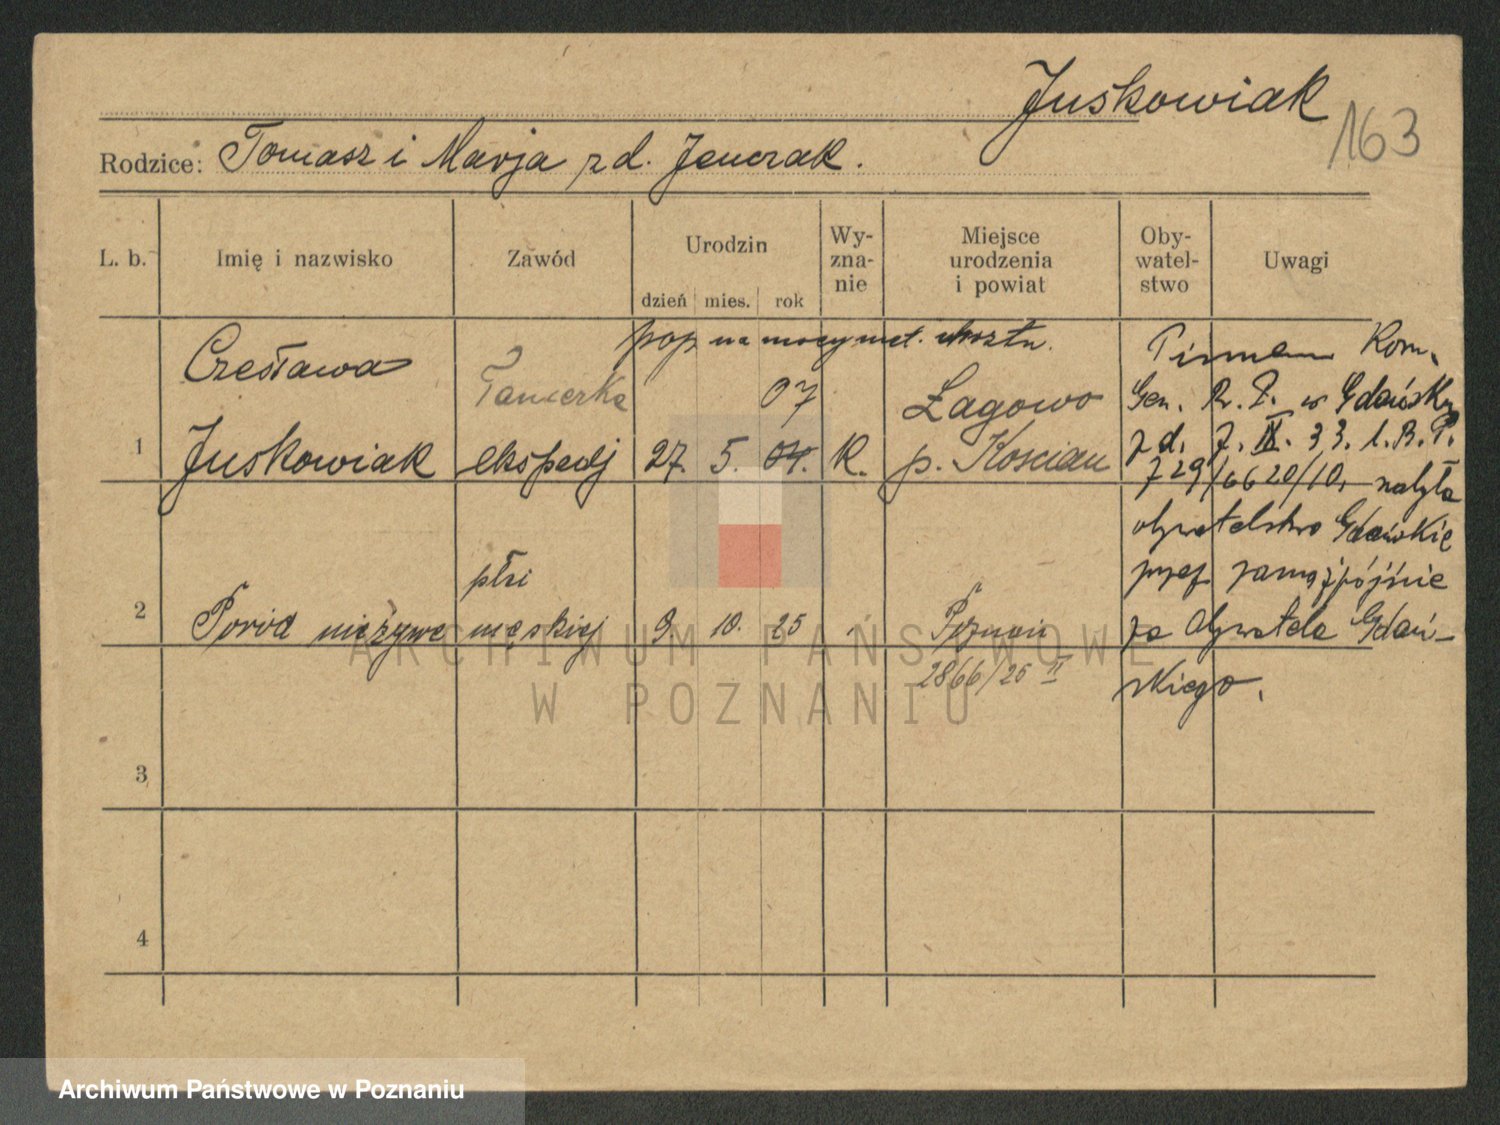 Juskowiak
163
Rodzice: Tomasz i Marja z d. Jenczak.
L. b. Imię i nazwisko Zawód Urodzin dzień mies. rok Wy-zna-nie Miejsce urodzenia i powiat Oby-watel-stwo Uwagi
pop na mocy met.
1 Czesława Juskowiak
Tancerka
ekspedj
27. 5. 04. 07
K.
Łagowo
p. Koscian
Pismem Kom.
Gen. R. P. w Gdańsku
z d. 7. IX. 33. l. B. P.
729/6620/10, nabyła
obywatelstwo Gdańskie
przez zamążpójście
za obywatela Gdań-
skiego.
2 Poród nieżywe
płci
męskiej
9. 10. 25
Poznań
2866/25 II
3
4
ARCHIWUM PAŃSTWOWE
W POZNANIU
Archiwum Państwowe w Poznaniu